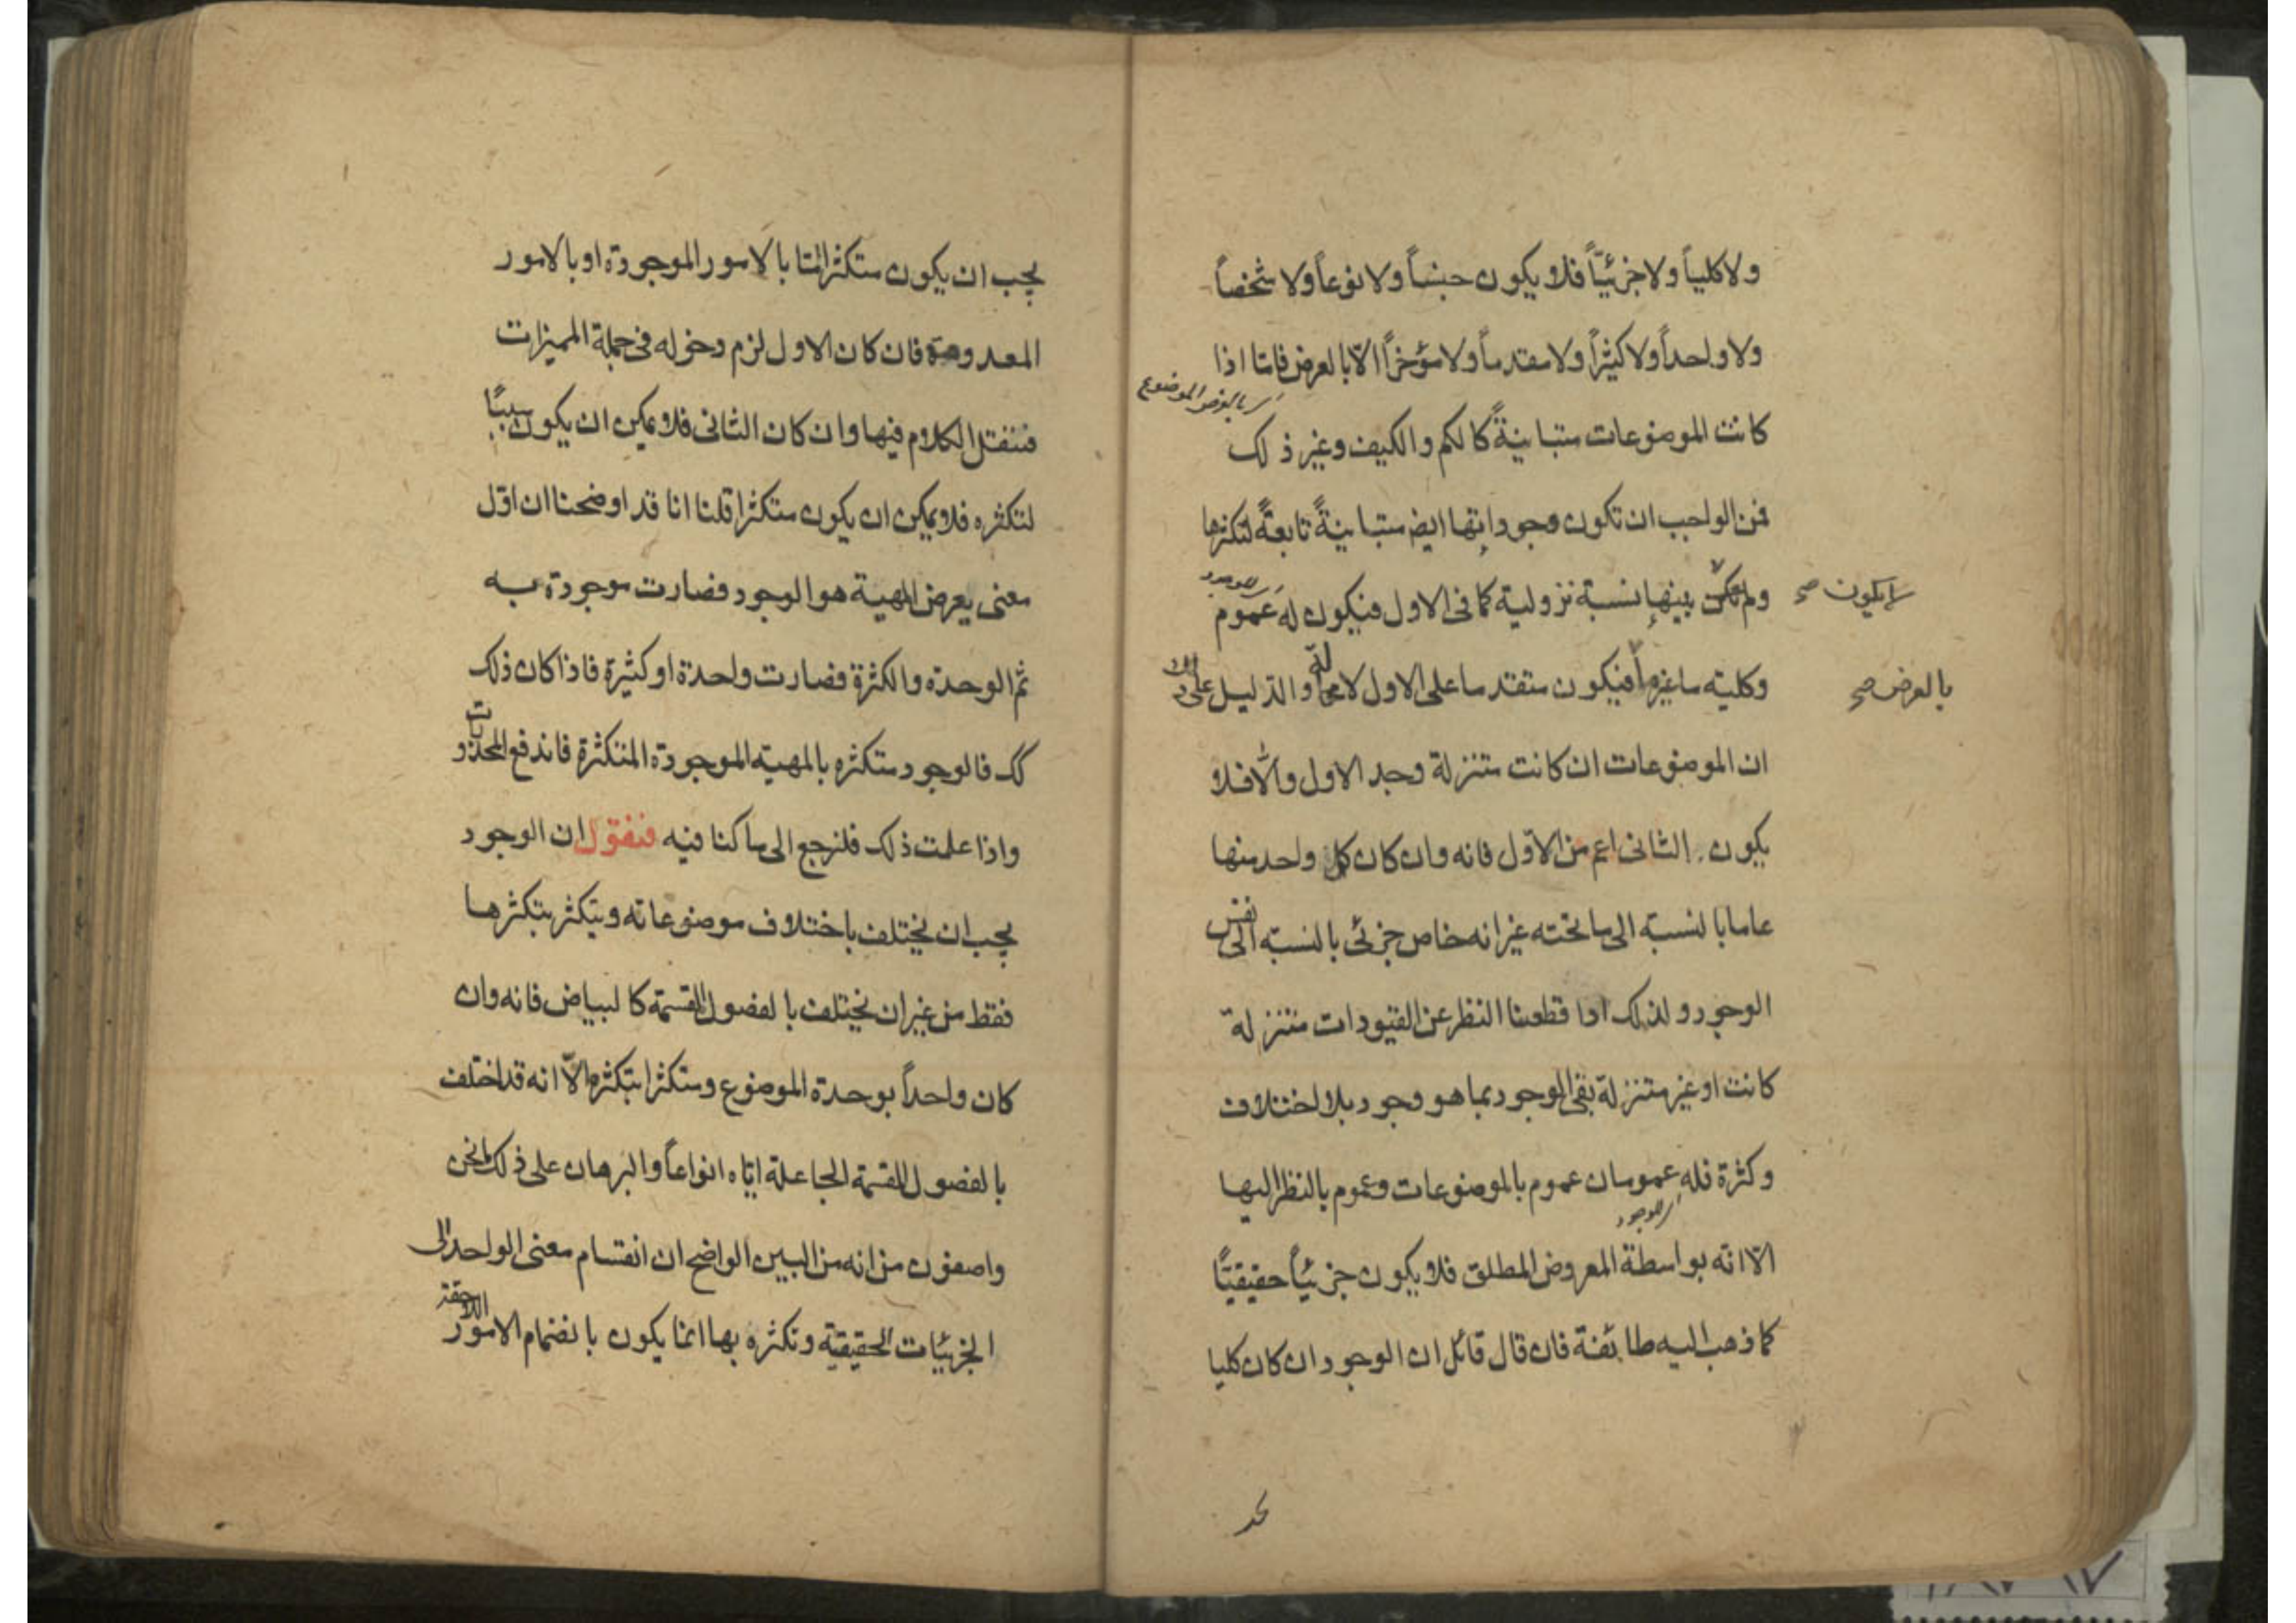 ولا كلياً ولا جزئيّاً فلا يكون جنساً ولا نوعاً ولا شخصاً
ولا واحداً ولا كثيراً ولا متقدماً ولا مؤخراً الّا بالعرض فامّا اذا
كانت الموضوعات متباينةً كالكم والكيف وغير ذلك
فمن الواجب ان تكون وجوداتها ايضا متباينةً تابعةً لتكثرها
ولم يكن بينها نسبة نزولية كما فى الاول فيكون له عموم
لا يكون صح
وكليته ما غير فيكون متقدما على الاول لا والدليل على
بالعرض صح
ان الموضوعات ان كانت متنزلة وجد الاول والّا فلا
يكون الثانى اعم من الاوّل فانه وان كان كل واحد منها
عاما بالنسبة الى ما تحته غير انه خاص جزئى بالنسبة الى نفس
الوجود ولذلك اذا قطعنا النظر عن القيودات متنزلة
كانت او غير متنزلة بقى الوجود بما هو وجود بلا اختلاف
وكثرة فله عمومان عموم بالموضوعات وعموم بالنظر اليها
الّا انّه بواسطة المعروض المطلق فلا يكون جزئياً حقيقيّاً
كما ذهب اليه طائفة فان قال قائل ان الوجود ان كان كليا
يجب ان يكون متكثرا امّا بالامور الموجودة او بالامور
المعدومة فان كان الاول لزم دخوله فى جملة المميزات
فننقل الكلام فيها وان كان الثانى فلا يمكن ان يكون سبباً
لتكثره فلا يمكن ان يكون متكثرا قلنا انا قد اوضحنا ان اوّل
معنى يعرض المهية هو الوجود فصارت موجودة به
ثم الوحدة والكثرة فصارت واحدة او كثيرة فاذا كان ذلك
كك فالوجود متكثره بالمهية الموجودة المتكثرة فاندفع المحذورات
واذا علمت ذلك فلنرجع الى ما كنا فيه فنقول ان الوجود
يجب ان يختلف باختلاف موضوعاته ويتكثر بتكثرها
فقط من غير ان يختلف بالفصول المقسمة كالبياض فانه وان
كان واحداً بوحدة الموضوع ومتكثرا بتكثره الّا انه قد اختلف
بالفصول المقسمة الجاعلة ايّاه انواعاً والبرهان على ذلك ما نحن
واصفون من انه من البين الواضح ان انقسام معنى الواحد الى
الجزئيات الحقيقية وتكثره بها انما يكون بانضمام الامور اللاحقة